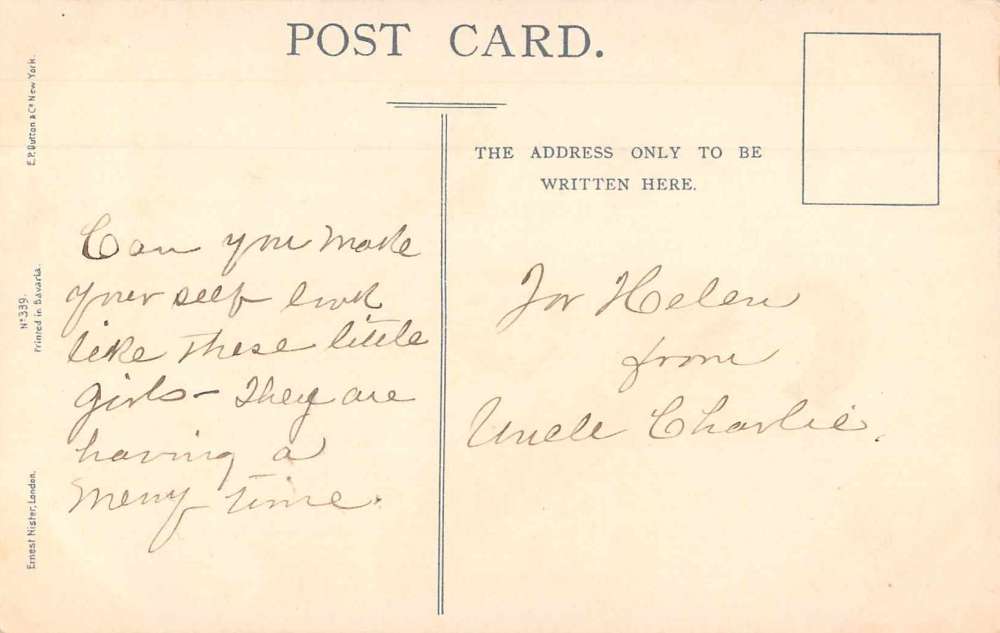 POST CARD.
THE ADDRESS ONLY TO BE
WRITTEN HERE.
E.P. Dutton & Co New York.
No 339.
Printed in Bavaria.
Ernest Nister, London.
Can you make
your self look
like these little
girls – They are
having a
merry time.
For Helen
from
Uncle Charlie.